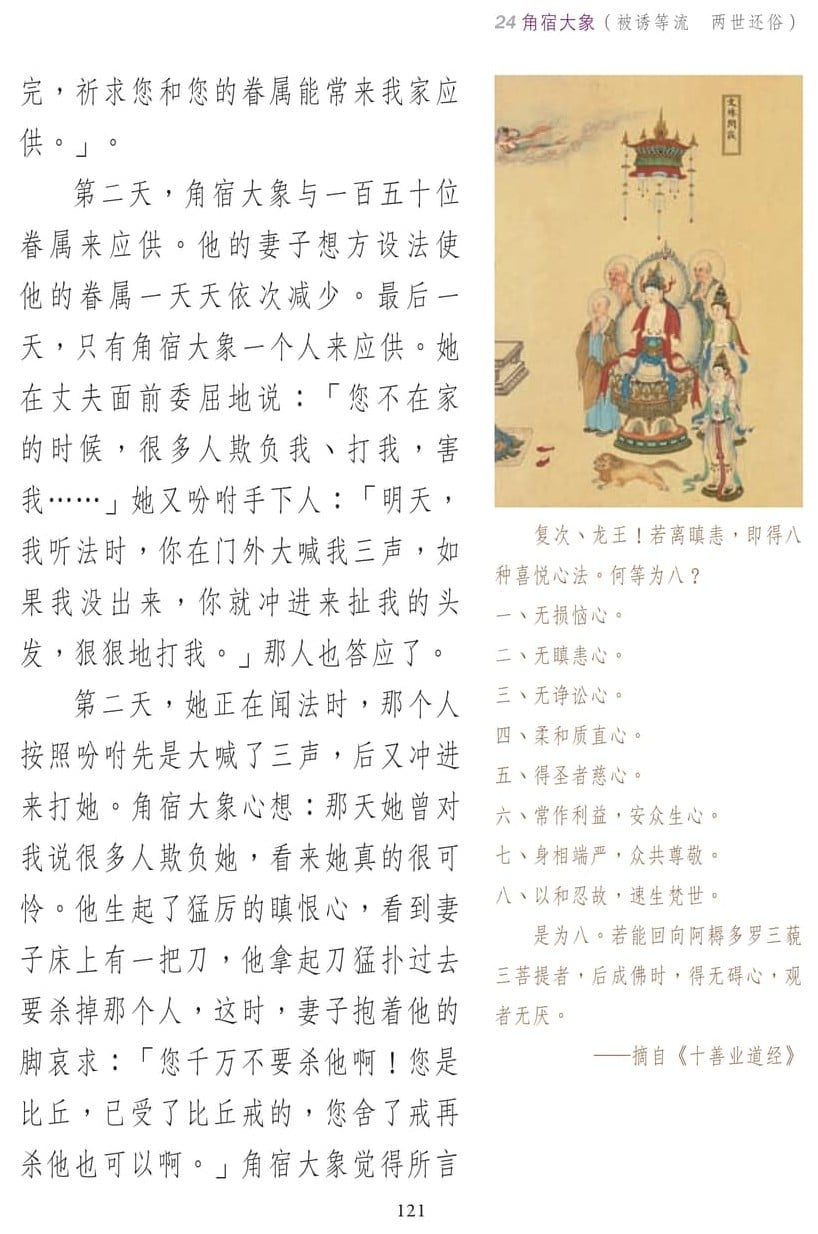 24 角宿大象（被诱等流　两世还俗）
完，祈求您和您的眷属能常来我家应
供。」。
第二天，角宿大象与一百五十位
眷属来应供。他的妻子想方设法使
他的眷属一天天依次减少。最后一
天，只有角宿大象一个人来应供。她
在丈夫面前委屈地说：「您不在家
的时候，很多人欺负我、打我，害
我……」她又吩咐手下人：「明天，
我听法时，你在门外大喊我三声，如
果我没出来，你就冲进来扯我的头
发，狠狠地打我。」那人也答应了。
第二天，她正在闻法时，那个人
按照吩咐先是大喊了三声，后又冲进
来打她。角宿大象心想：那天她曾对
我说很多人欺负她，看来她真的很可
怜。他生起了猛厉的瞋恨心，看到妻
子床上有一把刀，他拿起刀猛扑过去
要杀掉那个人，这时，妻子抱着他的
脚哀求：「您千万不要杀他啊！您是
比丘，已受了比丘戒的，您舍了戒再
杀他也可以啊。」角宿大象觉得所言
文殊問疾
复次、龙王！若离瞋恚，即得八
种喜悦心法。何等为八？
一、无损恼心。
二、无瞋恚心。
三、无诤讼心。
四、柔和质直心。
五、得圣者慈心。
六、常作利益，安众生心。
七、身相端严，众共尊敬。
八、以和忍故，速生梵世。
是为八。若能回向阿耨多罗三藐
三菩提者，后成佛时，得无碍心，观
者无厌。
——摘自《十善业道经》
121